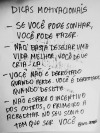 DICAS MOTIVACIONAIS
- SE VOCÊ PODE SONHAR,
VOCÊ PODE FAZER
- NÃO BASTA DESEJAR UMA
VIDA MELHOR, VOCÊ DEVE
CRIÁ-LA
- VOCÊ NÃO É DERROTADO
QUANDO PERDE, VOCÊ É DERROTADO
QUANDO DESISTE
- NÃO ESPERE O INCENTIVO
DOS OUTROS, O PRIMEIRO A
ACREDITAR NO SEU SONHO
TEM QUE SER VOCÊ